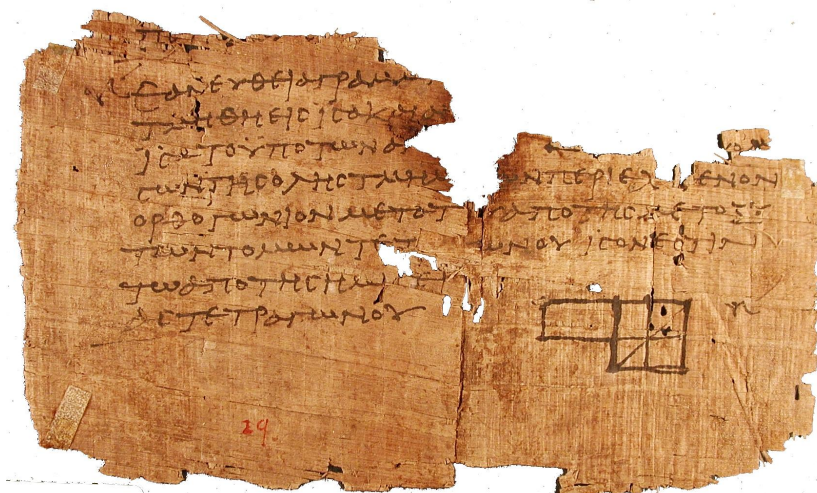 ΕΑΝΕΥΘΕΙΑΓΡΑΜΜ
ΤΜΗΘΗΕΙϹΙϹΑΚΑΙΑ
ΙϹΑΤΟΥΠΟΤΩΝΑ
ϹΩΝΤΗϹΟΛΗϹΤΜΗΜ ΩΝΠΕΡΙΕΧ ΜΕΝΟΝ
ΟΡΘΟΓΩΝΙΟΝΜΕΤΑΤ ΥΑΠΟΤΗϹΜΕΤΟΞΥ
ΤΩΝΤΟΜΩΝΤΕΤ ΩΝΟΥΙϹΟΝΕϹΤΙΝ
ΤΩΑΠΟΤΗϹΗΜΙ
ΑϹΤΕΤΡΑΓΩΝΟΥ
29.